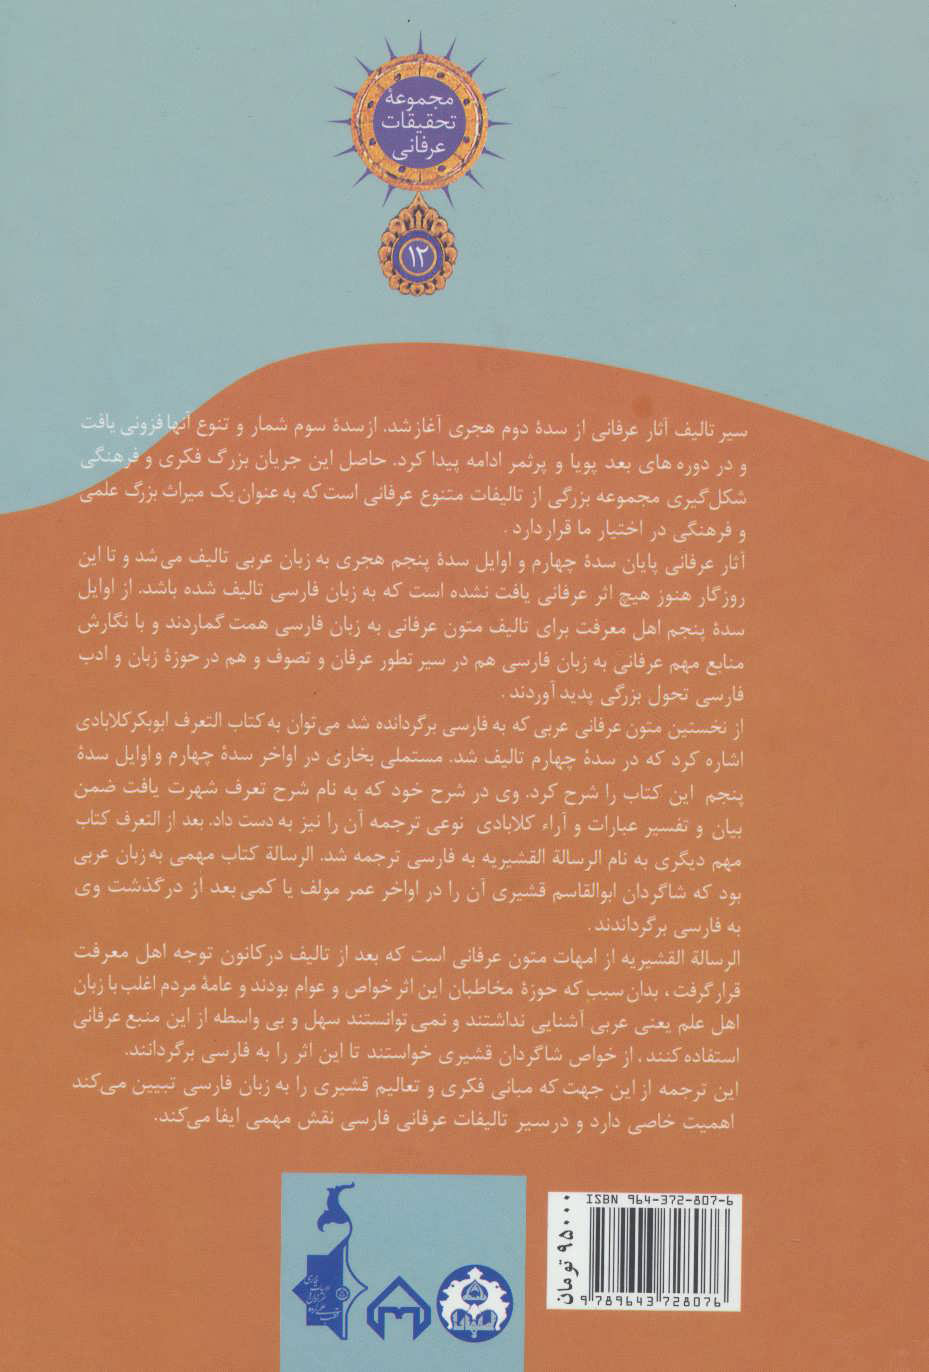 مجموعهٔ
تحقیقات
عرفانی
۱۲
سیر تالیف آثار عرفانی از سدهٔ دوم هجری آغاز شد. از سدهٔ سوم شمار و تنوع آنها فزونی یافت
و در دوره های بعد پویا و پرثمر ادامه پیدا کرد. حاصل این جریان بزرگ فکری و فرهنگی
شکل‌گیری مجموعه بزرگی از تالیفات متنوع عرفانی است که به عنوان یک میراث بزرگ علمی
و فرهنگی در اختیار ما قرار دارد.
آثار عرفانی پایان سدهٔ چهارم و اوایل سدهٔ پنجم هجری به زبان عربی تالیف می شد و تا این
روزگار هنوز هیچ اثر عرفانی یافت نشده است که به زبان فارسی تالیف شده باشد. از اوایل
سدهٔ پنجم اهل معرفت برای تالیف متون عرفانی به زبان فارسی همت گماردند و با نگارش
منابع مهم عرفانی به زبان فارسی هم در سیر تطور عرفان و تصوف و هم در حوزهٔ زبان و ادب
فارسی تحول بزرگی پدید آوردند.
از نخستین متون عرفانی عربی که به فارسی برگردانده شد می‌توان به کتاب التعرف ابوبکر کلابادی
اشاره کرد که در سدهٔ چهارم تالیف شد. مستملی بخاری در اواخر سدهٔ چهارم و اوایل سدهٔ
پنجم این کتاب را شرح کرد. وی در شرح خود که به نام شرح تعرف شهرت یافت ضمن
بیان و تفسیر عبارات و آراء کلابادی نوعی ترجمه آن را نیز به دست داد. بعد از التعرف کتاب
مهم دیگری به نام الرسالة القشیریه به فارسی ترجمه شد. الرسالة کتاب مهمی به زبان عربی
بود که شاگردان ابوالقاسم قشیری آن را در اواخر عمر مولف یا کمی بعد از درگذشت وی
به فارسی برگرداندند.
الرسالة القشیریه از امهات متون عرفانی است که بعد از تالیف در کانون توجه اهل معرفت
قرار گرفت، بدان سبب که حوزهٔ مخاطبان این اثر خواص و عوام بودند و عامهٔ مردم اغلب با زبان
اهل علم یعنی عربی آشنایی نداشتند و نمی توانستند سهل و بی واسطه از این منبع عرفانی
استفاده کنند، از خواص شاگردان قشیری خواستند تا این اثر را به فارسی برگردانند.
این ترجمه از این جهت که مبانی فکری و تعالیم قشیری را به زبان فارسی تبیین می‌کند
اهمیت خاصی دارد و در سیر تالیفات عرفانی فارسی نقش مهمی ایفا می‌کند.
ISBN 964-372-807-6
9 789643 728076
۹۵۰۰۰ تومان